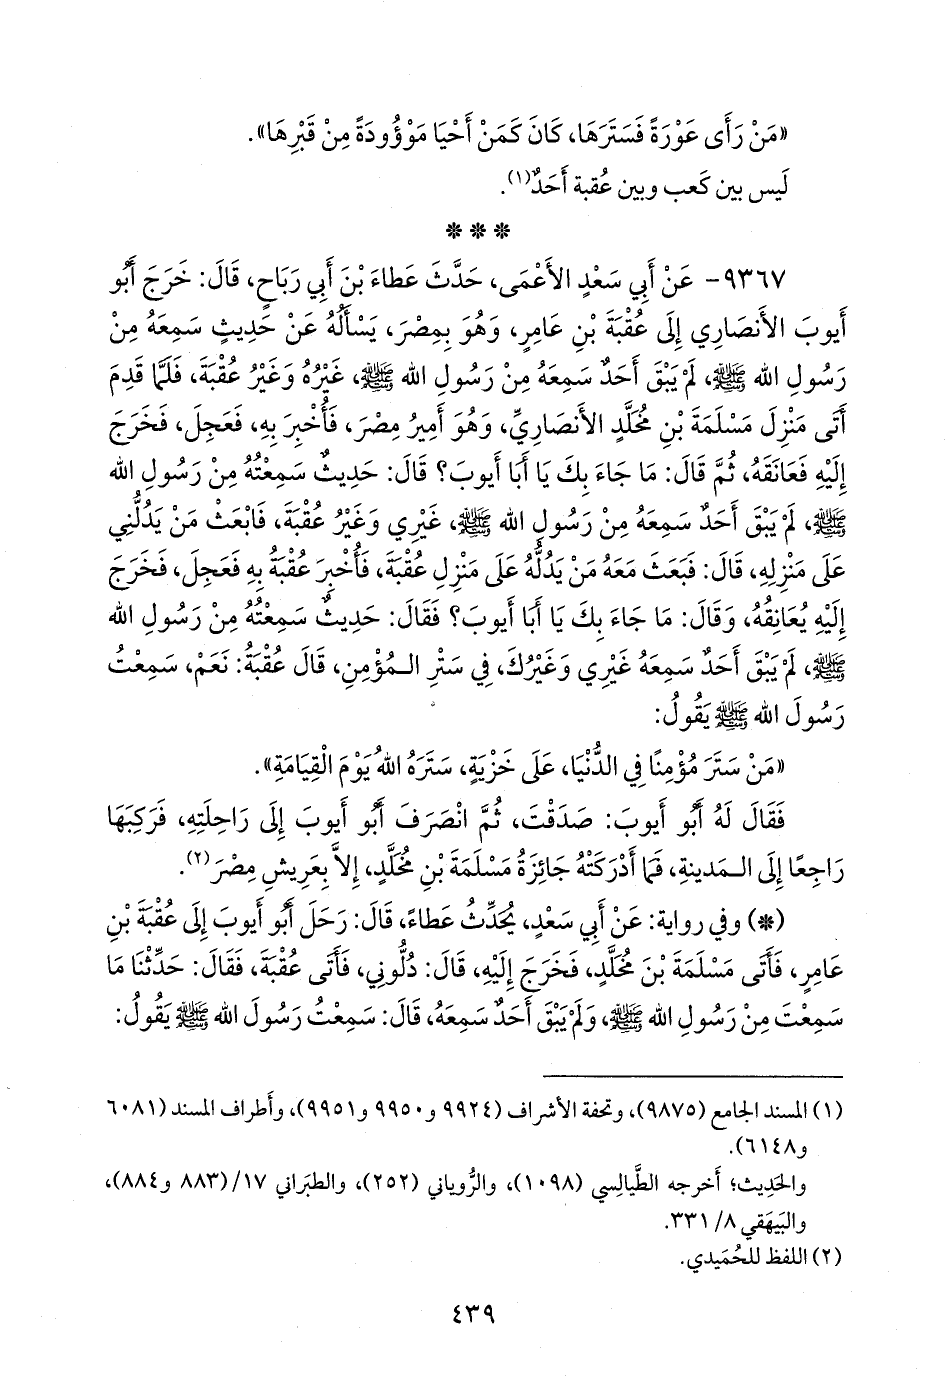 «مَنْ رَأَى عَوْرَةً فَسَتَرَهَا، كَانَ كَمَنْ أَحْيَا مَوْؤُودَةً مِنْ قَبْرِهَا».
لَيس بين كَعب وبين عُقبة أَحَدٌ(١).
* * *
٩٣٦٧- عَنْ أَبِي سَعْدٍ الأَعْمَى، حَدَّثَ عَطاءَ بْنَ أَبِي رَبَاحٍ، قَالَ: خَرَجَ أَبُو
أَيوبَ الأَنصَارِي إِلَى عُقْبَةَ بْنِ عَامِرٍ، وَهُوَ بِمِصْرَ، يَسْأَلُهُ عَنْ حَدِيثٍ سَمِعَهُ مِنْ
رَسُولِ الله ﷺ، لَمْ يَبْقَ أَحَدٌ سَمِعَهُ مِنْ رَسُولِ الله ﷺ، غَيْرُهُ وَغَيْرُ عُقْبَةَ، فَلَمَّا قَدِمَ
أَتَى مَنْزِلَ مَسْلَمَةَ بْنِ مُخَلَّدٍ الأَنصَارِيِّ، وَهُوَ أَمِيرُ مِصْرَ، فَأُخْبِرَ بِهِ، فَعَجِلَ، فَخَرَجَ
إِلَيْهِ فَعَانَقَهُ، ثُمَّ قَالَ: مَا جَاءَ بِكَ يَا أَبَا أَيوبَ؟ قَالَ: حَدِيثٌ سَمِعْتُهُ مِنْ رَسُولِ الله
ﷺ، لَمْ يَبْقَ أَحَدٌ سَمِعَهُ مِنْ رَسُولِ الله ﷺ، غَيْرِي وَغَيْرُ عُقْبَةَ، فَابْعَثْ مَنْ يَدُلُّنِي
عَلَى مَنْزِلِهِ، قَالَ: فَبَعَثَ مَعَهُ مَنْ يَدُلُّهُ عَلَى مَنْزِلِ عُقْبَةَ، فَأُخْبِرَ عُقْبَةُ بِهِ فَعَجِلَ، فَخَرَجَ
إِلَيْهِ يُعَانِقُهُ، وَقَالَ: مَا جَاءَ بِكَ يَا أَبَا أَيوبَ؟ فَقَالَ: حَدِيثٌ سَمِعْتُهُ مِنْ رَسُولِ الله
ﷺ، لَمْ يَبْقَ أَحَدٌ سَمِعَهُ غَيْرِي وَغَيْرُكَ، فِي سَتْرِ الـمُؤْمِنِ، قَالَ عُقْبَةُ: نَعَمْ، سَمِعْتُ
رَسُولَ الله ﷺ يَقُولُ:
«مَنْ سَتَرَ مُؤْمِنًا فِي الدُّنْيَا، عَلَى خَزْيَةٍ، سَتَرَهُ اللهُ يَوْمَ الْقِيَامَةِ».
فَقَالَ لَهُ أَبُو أَيوبَ: صَدَقْتَ، ثُمَّ انْصَرَفَ أَبُو أَيوبَ إِلَى رَاحِلَتِهِ، فَرَكِبَهَا
رَاجِعًا إِلَى الـمَدينةِ، فَمَا أَدْرَكَتْهُ جَائِزَةُ مَسْلَمَةَ بْنِ مُخَلَّدٍ، إِلاَّ بِعَرِيشِ مِصْرَ(٢).
(*) وفي رواية: عَنْ أَبِي سَعْدٍ، يُحَدِّثُ عَطاءً، قَالَ: رَحَلَ أَبُو أَيوبَ إِلَى عُقْبَةَ بْنِ
عَامِرٍ، فَأَتَى مَسْلَمَةَ بْنَ مُخَلَّدٍ، فَخَرَجَ إِلَيْهِ، قَالَ: دُلُّونِي، فَأَتَى عُقْبَةَ، فَقَالَ: حَدِّثْنَا مَا
سَمِعْتَ مِنْ رَسُولِ الله ﷺ، وَلَمْ يَبْقَ أَحَدٌ سَمِعَهُ، قَالَ: سَمِعْتُ رَسُولَ الله ﷺ يَقُولُ:
(١) المسند الجامع (٩٨٧٥)، وتحفة الأشراف (٩٩٢٤ و٩٩٥٠ و٩٩٥١)، وأطراف المسند (٦٠٨١
و٦١٤٨).
والحَدِيث؛ أخرجه الطَّيالِسي (١٠٩٨)، والرُّوياني (٢٥٢)، والطبَراني ١٧/ (٨٨٣ و٨٨٤)،
والبَيهَقي ٨/ ٣٣١.
(٢) اللفظ للحُمَيدي.
٤٣٩